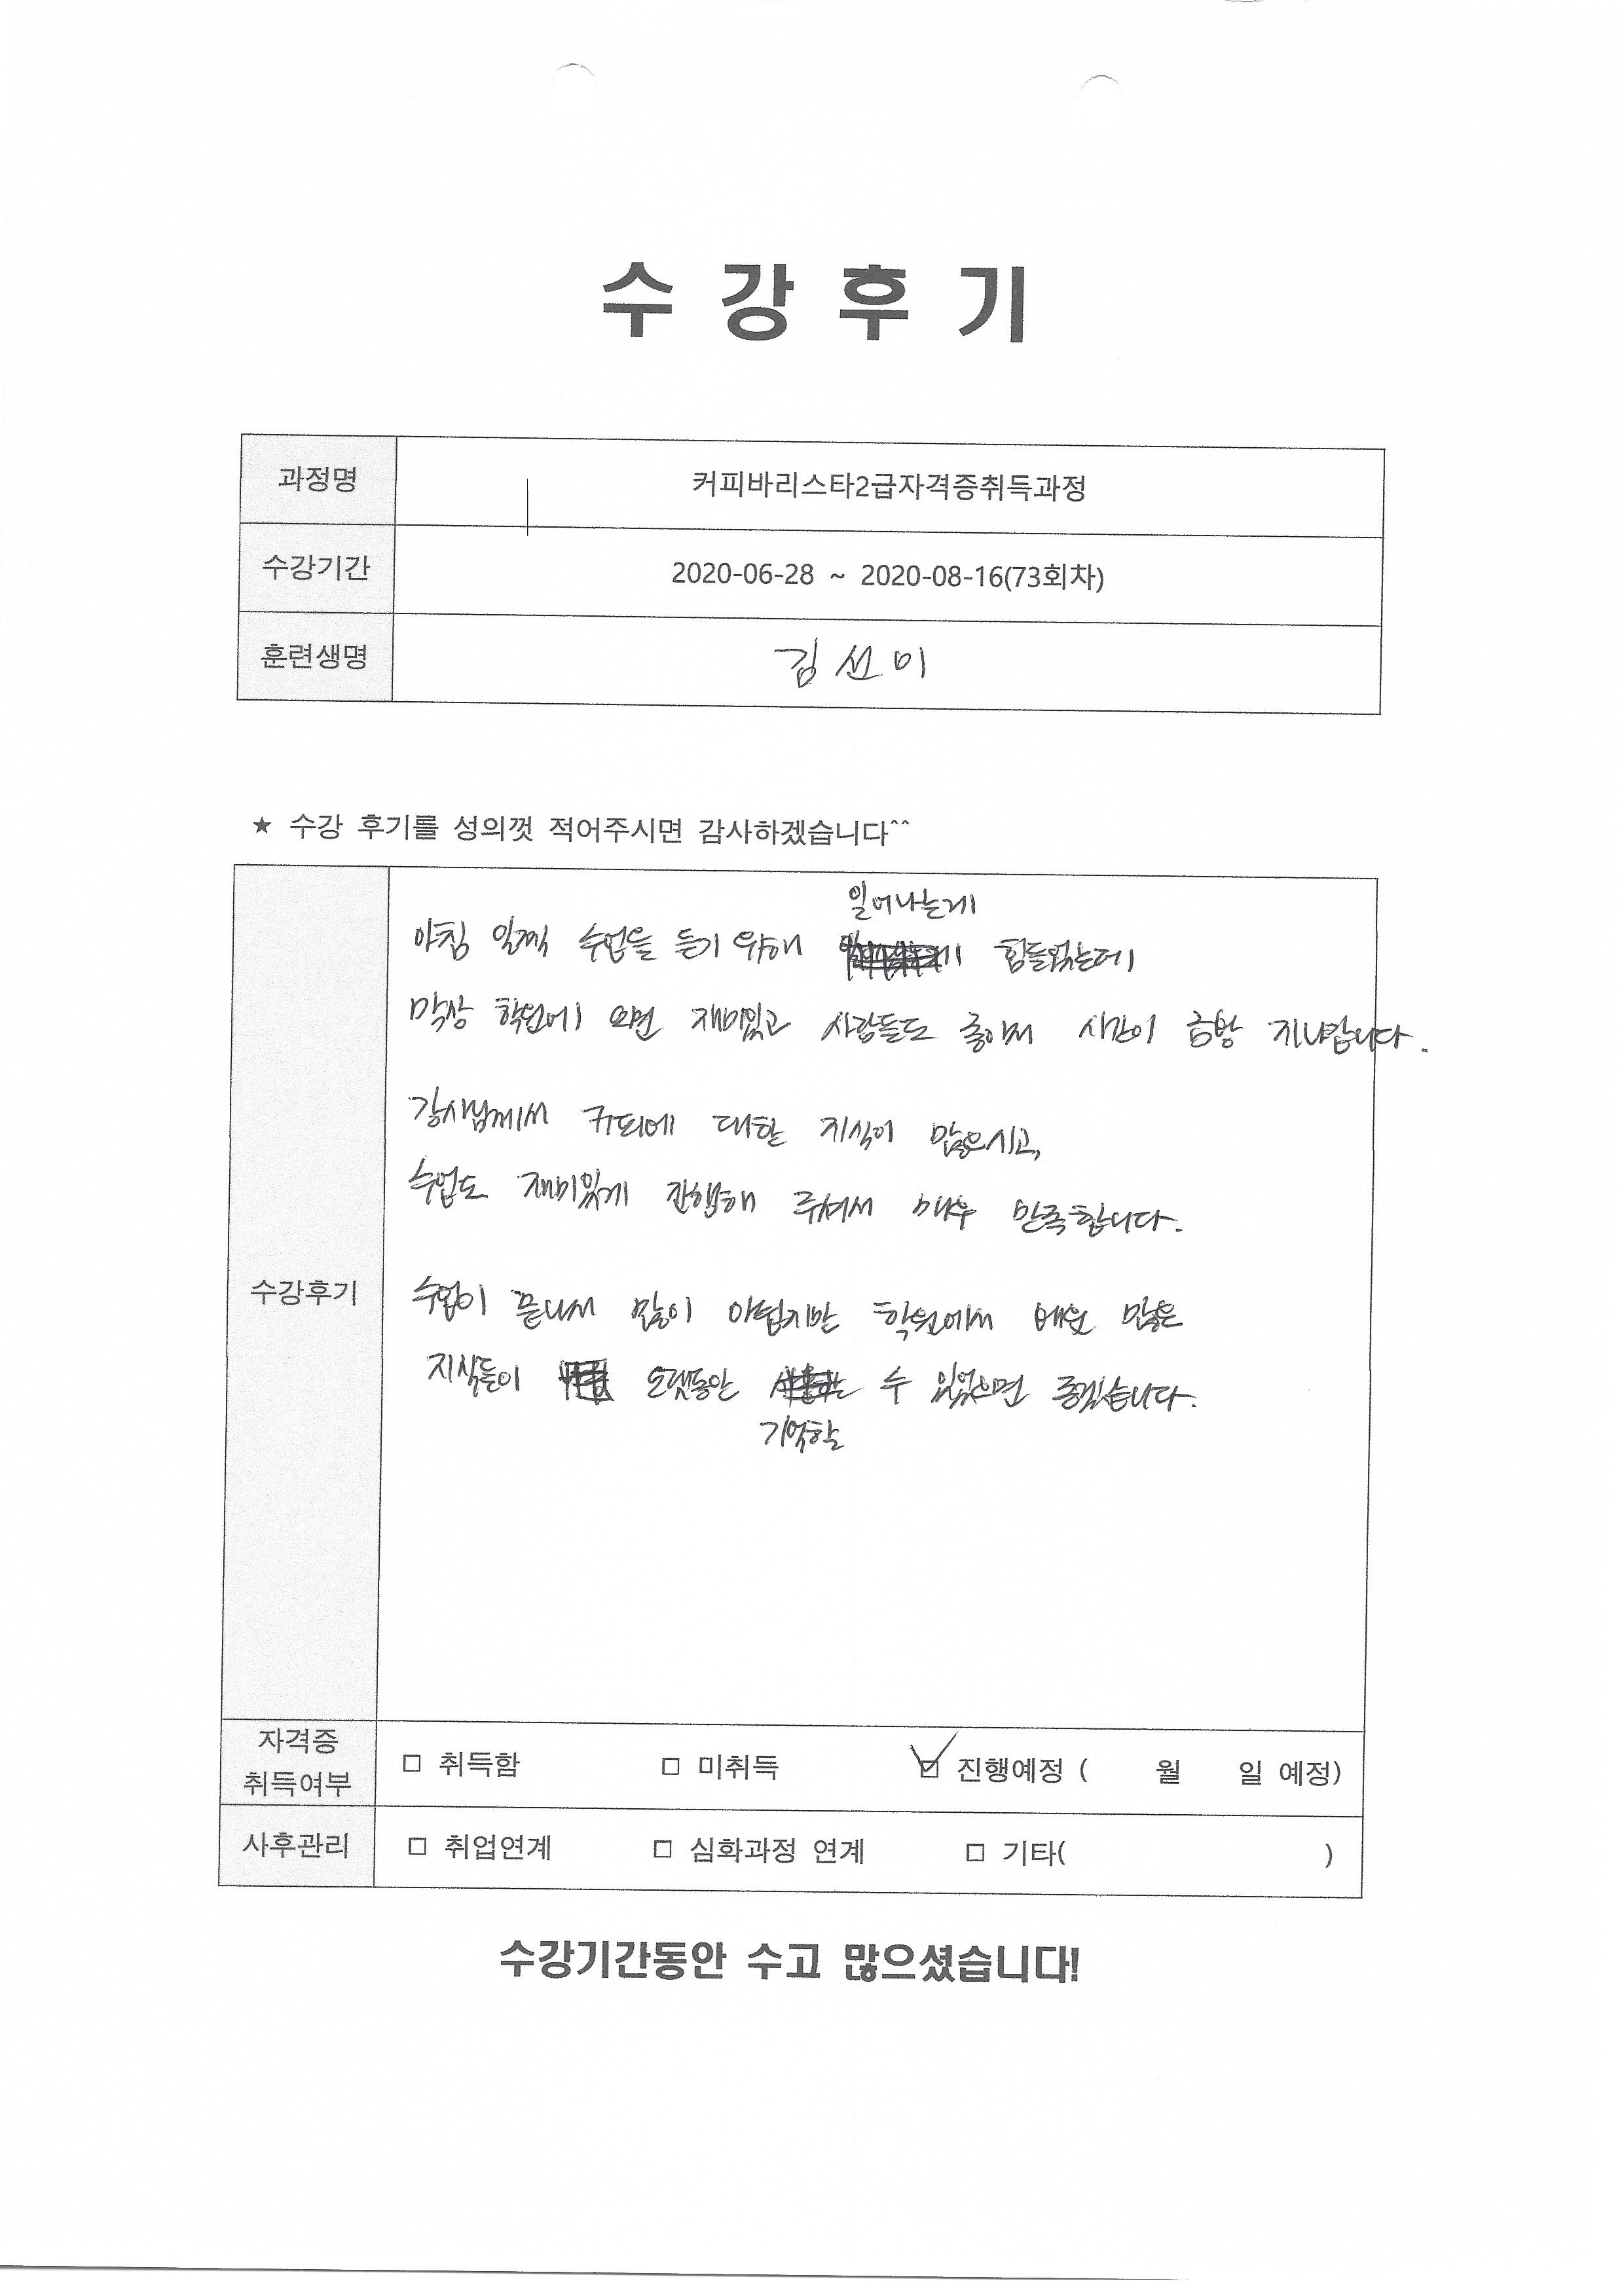 수 강 후 기
과정명 커피바리스타2급자격증취득과정
수강기간 2020-06-28 ~ 2020-08-16(73회차)
훈련생명 김선미
★ 수강 후기를 성의껏 적어주시면 감사하겠습니다^^
일어나는게
아침 일찍 수업을 듣기 위해 힘들었는데
막상 학원에 오면 재미있고 사람들도 좋아서 시간이 금방 지나갑니다.
강사님께서 커피에 대한 지식이 많으시고,
수업도 재미있게 진행해 주셔서 매우 만족합니다.
수강후기
수업이 끝나서 많이 아쉽지만 학원에서 배운 많은
지식들이 오랫동안 수 있었으면 좋겠습니다.
기억할
자격증
취득여부
□ 취득함 □ 미취득 ☑ 진행예정 ( 월 일 예정)
사후관리 □ 취업연계 □ 심화과정 연계 □ 기타( )
수강기간동안 수고 많으셨습니다!